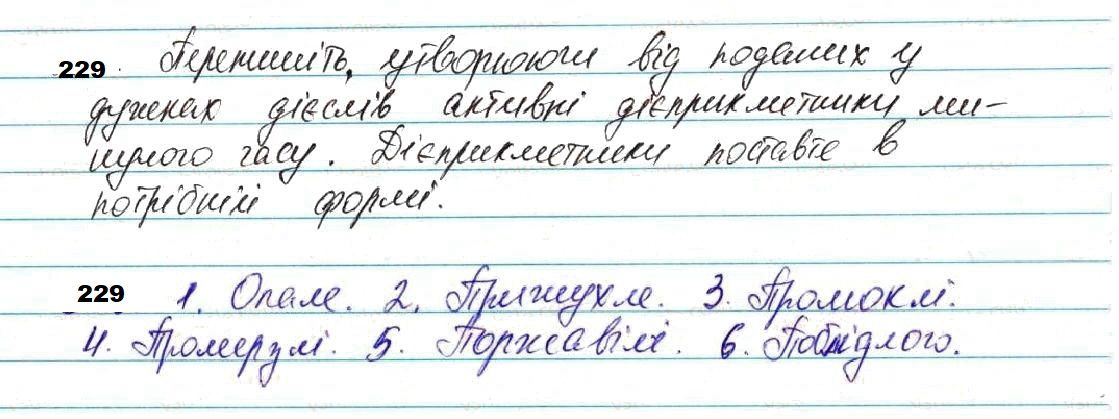 229 Перепишіть, утворюючи від поданих у
дужках дієслів активні дієприкметники ми-
нулого часу. Дієприкметники поставте в
потрібній формі.
229 1. Опале. 2. Прижухле. 3. Промоклі.
4. Промерзлі. 5. Поржавілі. 6. Поблідлого.